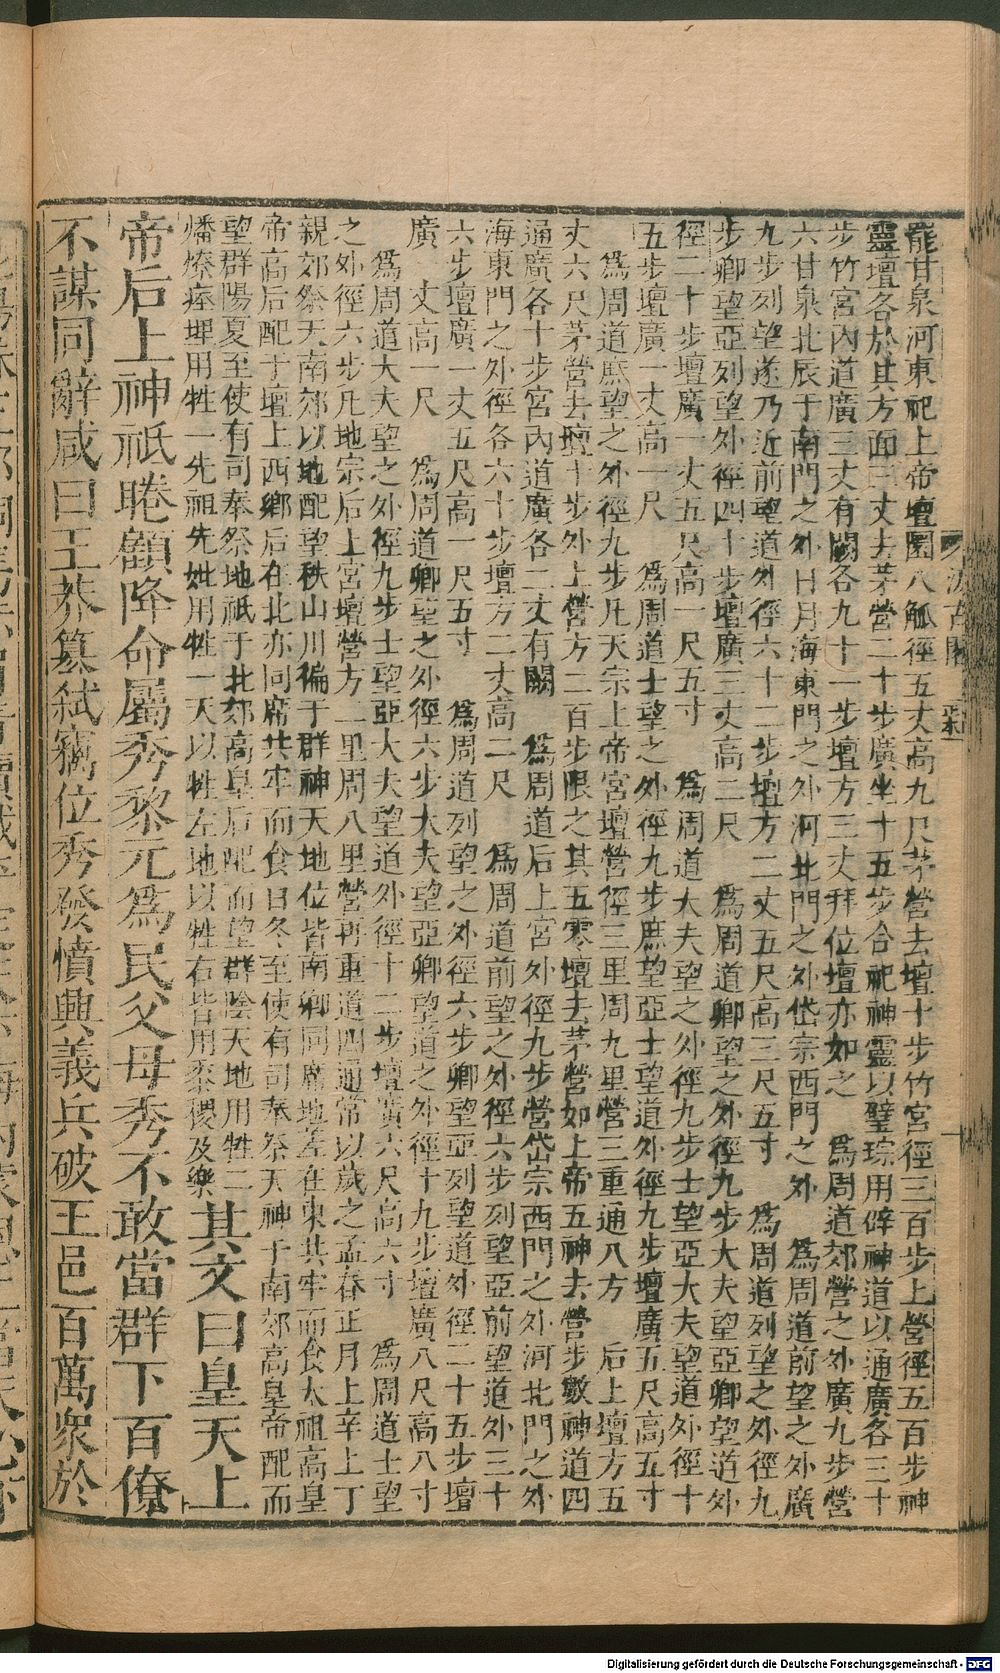 能甘泉河東祀上帝壇圓八觚徑五丈高九尺茅營去壇十步竹宮徑三百步土營徑五百步神
靈壇各於其方面三丈去茅營二十步廣坐十五步合祀神靈以璧琮用辟神道以通廣各三十
步竹宮內道廣三丈有闕各九十一步壇方三丈拜位壇亦如之　爲周道郊營之外廣九步營
六甘泉北辰于南門之外日月海東門之外河北門之外岱宗西門之外　爲周道前望之外廣
九步列望遂乃近前望道外徑六十二步壇方二丈五尺高三尺五寸　爲周道列望之外徑九
步卿望亞列望外徑四十步壇廣三丈高二尺　爲周道卿望之外徑九步大夫望亞卿望道外
徑二十步壇廣一丈五尺高一尺五寸　爲周道大夫望之外徑九步士望亞大夫望道外徑十
五步壇廣一丈高一尺　爲周道士望之外徑九步庶望亞士望道外徑九步壇廣五尺高五寸
爲周道庶望之外徑九步凡天宗上帝宮壇營徑三里周九里營三重通八方　后土壇方五
丈六尺茅營去壇十步外土營方二百步限之其五零壇去茅營如上帝五神去營步數神道四
通廣各十步宮內道廣各二丈有闕　爲周道后土宮外徑九步營岱宗西門之外河北門之外
海東門之外徑各六十步壇方二丈高二尺　爲周道前望之外徑六步列望亞前望道外三十
六步壇廣一丈五尺高一尺五寸　爲周道列望之外徑六步卿望亞列望道外徑二十五步壇
廣一丈高一尺　爲周道卿望之外徑六步大夫望亞卿望道之外徑十九步壇廣八尺高八寸
爲周道大夫望之外徑九步士望亞大夫望道外徑十二步壇廣六尺高六寸　爲周道士望
之外徑六步凡地宗后土宮壇營方二里周八里營再重道四通常以歲之孟春正月上辛上丁
親郊祭天南郊以地配望秩山川徧于群神天地位皆南鄉同席地差在東共牢而食太祖高皇
帝高后配于壇上西鄉后在北亦同席共牢而食日冬至使有司奉祭天神于南郊高皇帝配而
望群陽夏至使有司奉祭地祇于北郊高皇后配而望群陰天地用牲二
燔燎瘞埋用牲一先祖先妣用牲一天以牲左地以牲右皆用黍稷及樂其文曰皇天上
帝后土神祇眷顧降命屬秀黎元爲民父母秀不敢當群下百僚
不謀同辭咸曰王莽篡弒竊位秀發憤興義兵破王邑百萬衆於
汲古閣
Digitalisierung gefördert durch die Deutsche Forschungsgemeinschaft - DFG